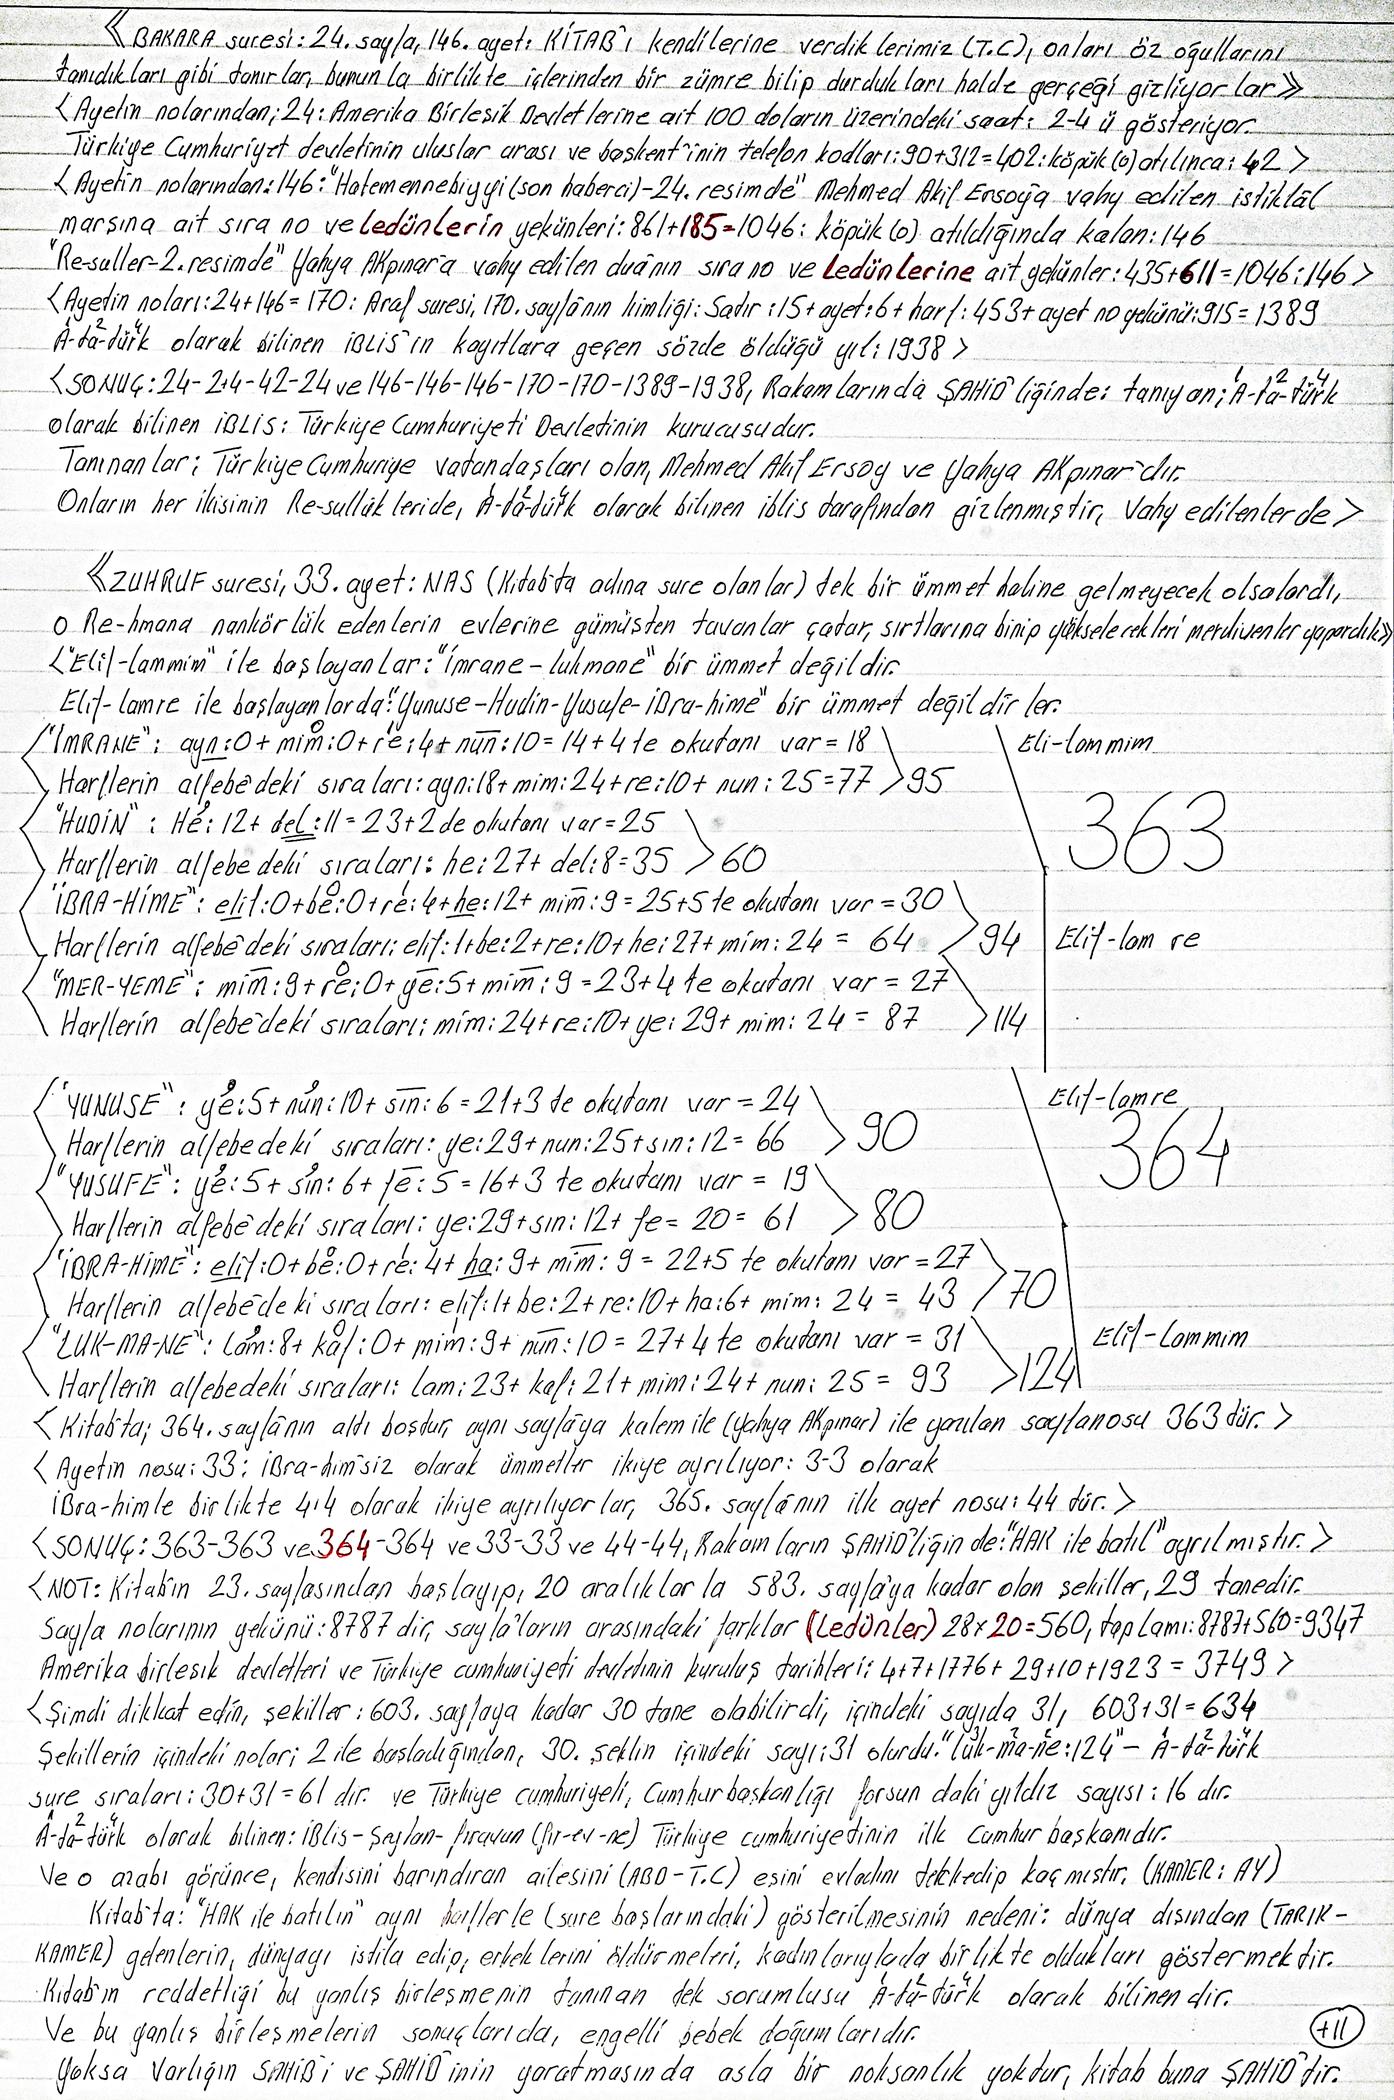 《BAKARA suresi: 24. sayfa, 146. ayet: KİTAB'ı kendilerine verdiklerimiz (T.C), onları öz oğullarını
tanıdıkları gibi tanırlar, bununla birlikte içlerinden bir zümre bilip durdukları halde gerçeği gizliyorlar》
<Ayetin nolarından; 24: Amerika Birleşik Devletlerine ait 100 doların üzerindeki saat: 2-4 ü gösteriyor.
Türkiye Cumhuriyet devletinin uluslar arası ve başkent'inin telefon kodları: 90+312=402: köpük (o) atılınca: 42>
<Ayetin nolarından: 146: "Hatemennebiyyi (son haberci)-24. resimde" Mehmed Akif Ersoy'a vahy edilen istiklâl
marşına ait sıra no ve ledünlerin yekünleri: 861+185=1046: köpük (o) atıldığında kalan: 146
"Re-suller-2. resimde" Yahya AKpınar'a vahy edilen duânın sıra no ve Ledünlerine ait yekünler: 435+611=1046:146>
<Ayetin noları: 24+146=170: Araf suresi, 170. sayfânın kimliği: Satır: 15+ayet: 6+harf: 453+ayet no yekünü: 915=1389
Á-tá²-türk⁴ olarak bilinen İBLİS'in kayıtlara geçen sözde öldüğü yıl: 1938>
<SONUÇ: 24-2+4-42-24 ve 146-146-146-170-170-1389-1938, Rakamlarında ŞAHİD'liğinde: tanıyan; Á-tá²-türk⁴
olarak bilinen İBLİS: Türkiye Cumhuriyeti Devletinin kurucusudur.
Tanınanlar: Türkiye Cumhuriye vatandaşları olan, Mehmed Akif Ersoy ve Yahya AKpınar'dır.
Onların her ikisinin Re-sullük leride, Á-tá²-türk⁴ olarak bilinen iblis tarafından gizlenmiştir, Vahy edilenlerde>
《ZUHRUF suresi, 33. ayet: NAS (Kitab'ta adına sure olanlar) tek bir ümmet haline gelmeyecek olsalardı,
O Re-hmana nankörlük edenlerin evlerine gümüşten tavanlar çatar, sırtlarına binip yükselecekleri merdivenler yapardık》
<"Elif-lammim" ile başlayanlar: "İmrane-lukmane" bir ümmet değildir.
Elif-lamre ile başlayanlarda: "Yunuse-Hudin-Yusufe-İBra-hime" bir ümmet değildirler.
"İMRANE": ayn: 0+mim: 0+re: 4+nün: 10=14+4 te okutanı var=18
Harflerin alfebe'deki sıraları: ayn: 18+mim: 24+re: 10+nun: 25=77 >95
Eli-lammim
"HUDİN": He: 12+del: 11=23+2 de okutanı var=25
363
Harflerin alfebe deki sıraları: he: 27+del: 8=35 >60
"İBRA-HİME": elif: 0+be: 0+re: 4+he: 12+mim: 9=25+5 te okutanı var=30
Harflerin alfebe'deki sıraları: elif: 1+be: 2+re: 10+he: 27+mim: 24=64 >94
Elif-lam re
"MER-YEME": mim: 9+re: 0+ye: 5+mim: 9=23+4 te okutanı var=27
Harflerin alfebe'deki sıraları: mim: 24+re: 10+ye: 29+mim: 24=87 >114
"YUNUSE": ye: 5+nün: 10+sin: 6=21+3 te okutanı var=24
Elif-lamre
Harflerin alfebedeki sıraları: ye: 29+nun: 25+sın: 12=66 >90
364
"YUSUFE": ye: 5+sin: 6+fe: 5=16+3 te okutanı var=19
Harflerin alfebe'deki sıraları: ye: 29+sın: 12+fe=20=61 >80
"İBRA-HİME": elif: 0+be: 0+re: 4+ha: 9+mim: 9=22+5 te okutanı var=27
Harflerin alfebe'deki sıraları: elif: 1+be: 2+re: 10+ha: 6+mim: 24=43 >70
"LUK-MA-NE": lam: 8+kaf: 0+mim: 9+nün: 10=27+4 te okutanı var=31
Elif-lammim
Harflerin alfebedeki sıraları: lam: 23+kaf: 21+mim: 24+nun: 25=93 >124
<Kitab'ta; 364. sayfânın altı boşdur, aynı sayfâya kalem ile (Yahya AKpınar) ile yazılan sayfanosu 363 dür.>
<Ayetin nosu: 33: İBra-him'siz olarak ümmetler ikiye ayrılıyor: 3-3 olarak
İBra-himle birlikte 4+4 olarak ikiye ayrılıyorlar, 365. sayfânın ilk ayet nosu: 44 tür.>
<SONUÇ: 363-363 ve 364-364 ve 33-33 ve 44-44, Rakamların ŞAHİD'liğin de: "HAK ile batıl" ayrılmıştır.>
<NOT: Kitab'ın 23. sayfasından başlayıp, 20 aralıklarla 583. sayfâ'ya kadar olan şekiller, 29 tanedir.
Sayfa nolarının yekünü: 8787 dir, sayfâ'ların arasındaki farklar (Ledünler) 28x20=560, toplamı: 8787+560=9347
Amerika birleşik devletleri ve Türkiye cumhuriyeti devletinin kuruluş tarihleri: 4+7+1776+29+10+1923=3749>
<Şimdi dikkat edin, şekiller: 603. sayfaya kadar 30 tane olabilirdi, içindeki sayıda 31, 603+31=634
Şekillerin içindeki nolar; 2 ile başladığından, 30. şeklin içindeki sayı: 31 olurdu. "lûk-ma-ne: 124" - Á-tá²-türk⁴
sure sıraları: 30+31=61 dır. ve Türkiye cumhuriyeti, Cumhurbaşkanlığı forsun daki yıldız sayısı: 16 dır.
Á-tá²-türk⁴ olarak bilinen: İBlis-Şeytan-firavun (fir-ev-ne) Türkiye cumhuriyetinin ilk Cumhur başkanıdır.
Ve o arabı görünce, kendisini barındıran ailesini (ABD-T.C) eşini evladını terkedip kaçmıştır. (KAMER: AY)
Kitab'ta: "HAK ile batılın" aynı harflerle (sure başlarındaki) gösterilmesinin nedeni: dünya dışından (TARIK-
KAMER) gelenlerin, dünyayı istila edip, erkeklerini öldürmeleri, kadınlarıylada birlikte oldukları göstermektir.
Kıtab'ın reddettiği bu yanlış birleşmenin tanınan tek sorumlusu Á-tá²-türk⁴ olarak bilinendir.
Ve bu yanlış birleşmelerin sonuçlarıda, engelli bebek doğumlarıdır.
+11
Yoksa Varlığın SAHİB'i ve ŞAHİD'inin yaratmasında asla bir noksanlık yoktur, kitab buna ŞAHİD'tir.